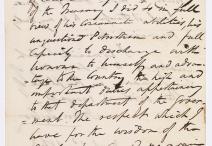 of the Treasury I did so in full
view of his eminent abilities, his
unquestioned Patriotism and full
capacity to discharge with
honour to himself and advan-
tage to the Country the high and
important duties appertaining
to that department of the Gover-
ment. The respect which I
have for the wisdom of the